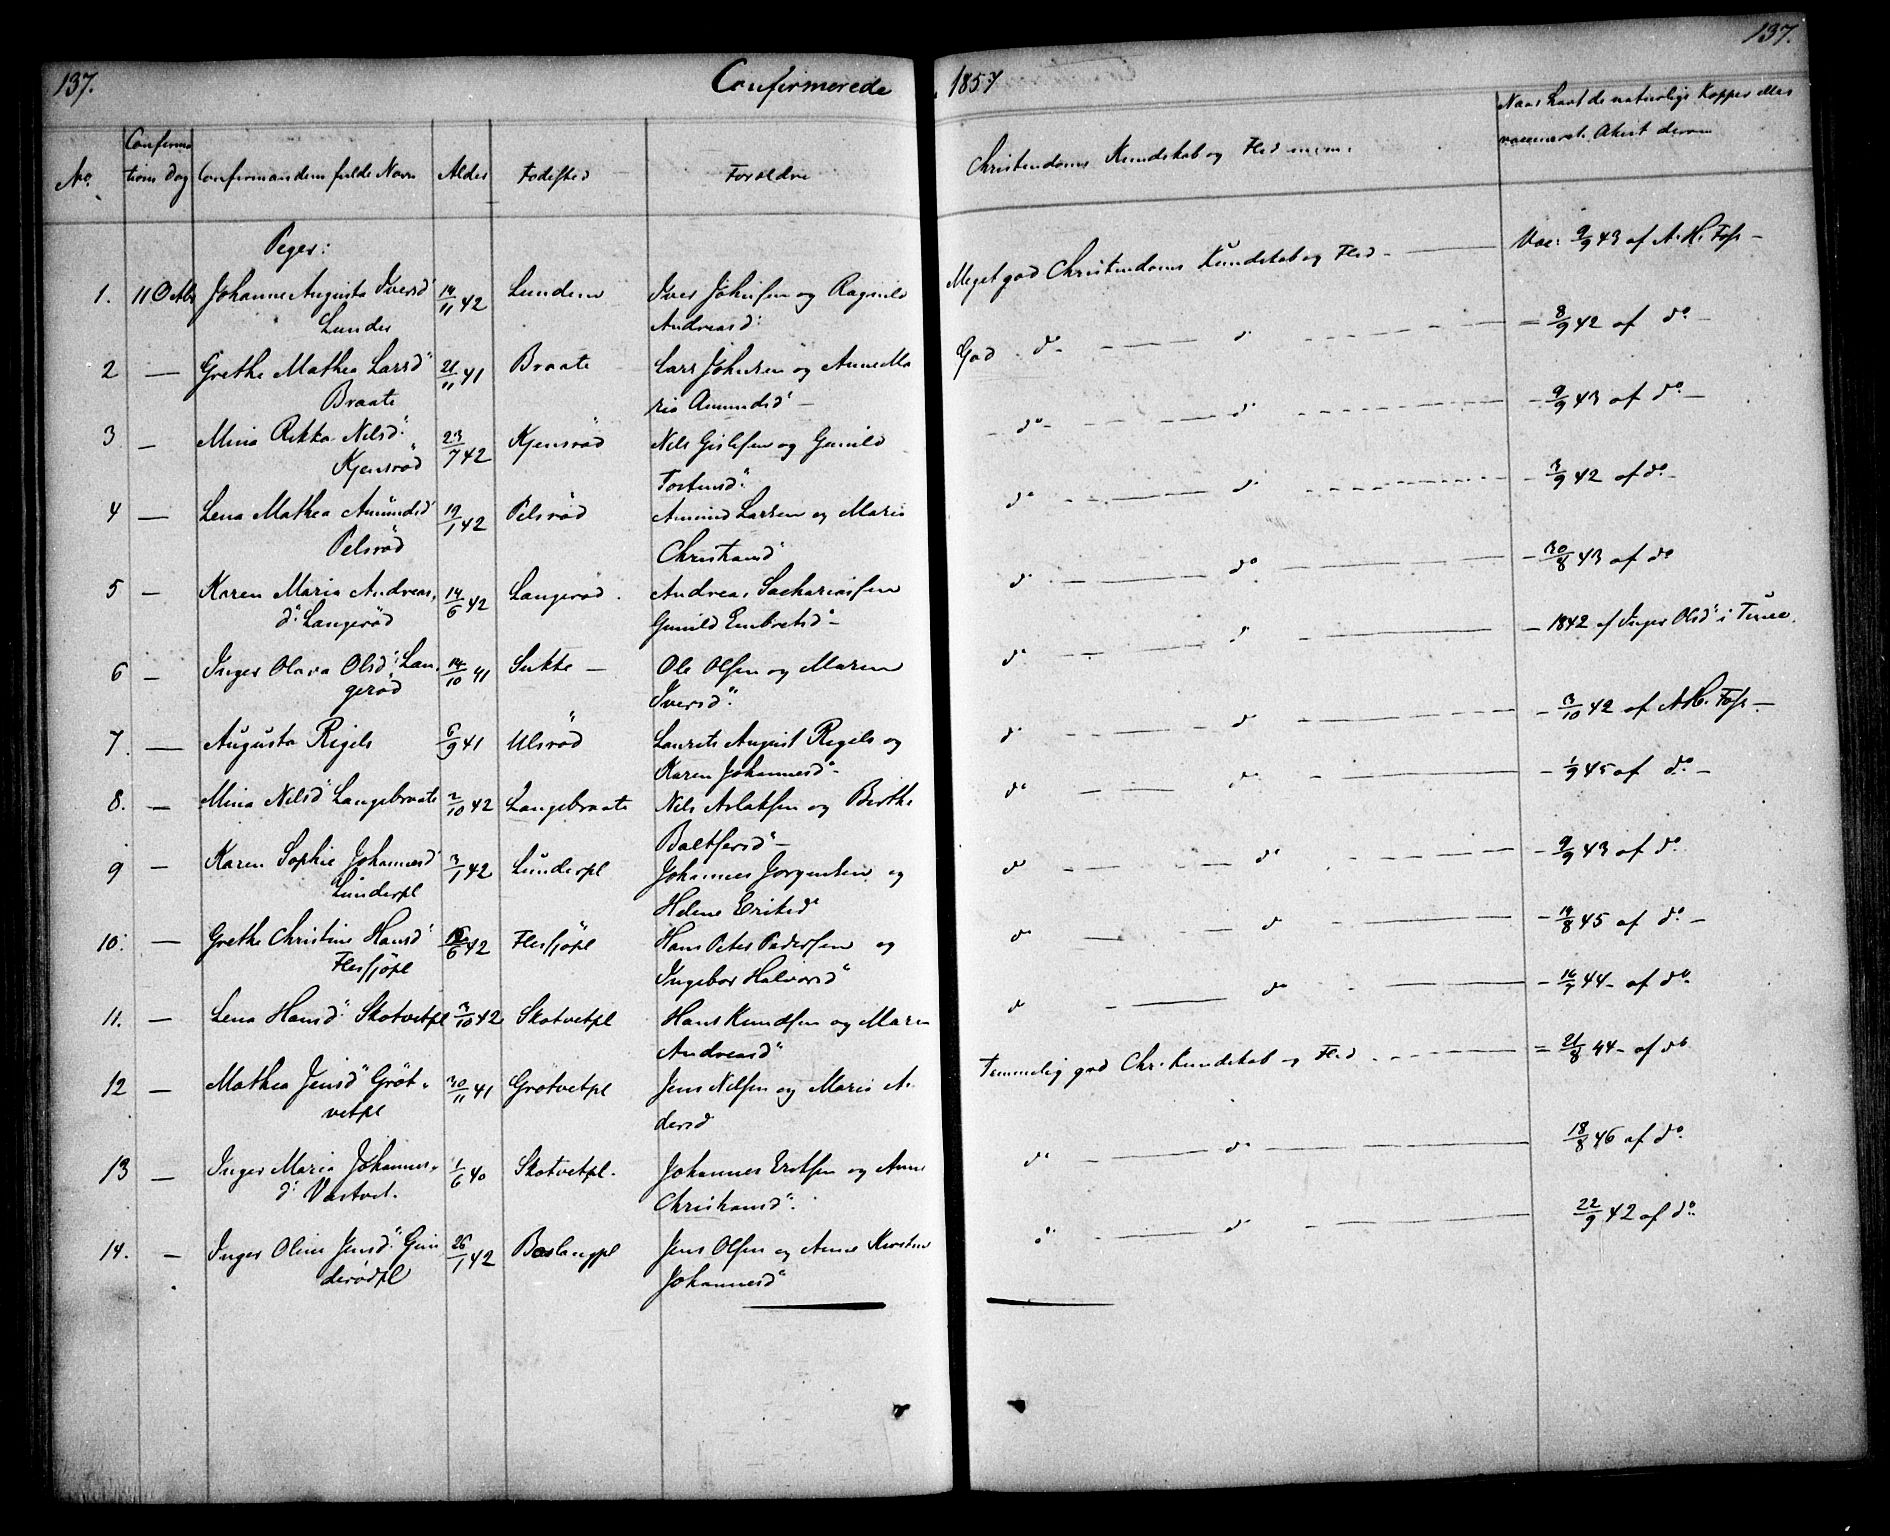 137.
Confirmerede
1857
137.
No.
Confirma
tions Dag
Confirmandens fulde Navn
Alder
Fødested
Forældre
Christendoms Kundskab og Flid m.m.
Naar havt de naturlige Kopper eller
vaccineret. Attest derom
Peger:
1. 11 Octbr Johanne Augusta Iversd 14/11 42 Lunden Iver Johnsen og Ragnild Meget god Christendoms Kundskab og Flid — Vac: 9/9 43 af A. H. Foss —
Lunder Andreasd:
2 — Grethe Mathea Larsd 21/11 41 Braate Lars Johnsen og Anne Ma God do — do — 8/9 42 af do —
Braate ria Amundsd —
3 — Mina Rikka Nilsd 23/7 42 Kjensrød Nils Gislesen og Gunild — do — do — 9/9 43 af do —
Kjensrød Torstensd
4 — Lena Mathea Amundsd 19/1 42 Pelsrød Amund Larsen og Maria do — do — 3/9 42 af do —
Pelsrød Christiansd
5 — Karen Maria Andreas- 14/6 42 Langerød Andreas Sachariassen do — do — 30/8 43 af do
d. Langerød Gunild Embretsd —
6 — Inger Olava Olsd Lan- 14/10 41 Sukke — Ole Olsen og Maren do — do — 1842 af Inger Olsd i Tune.
gerød Iversd
7. — Augusta Rigels 6/9 41 Ulsrød Laurits August Rigels og do — do — 3/10 42 af A. H. Foss —
Karen Johannesd —
8. — Mina Nilsd Langebraate 2/10 42 Langebraate Nils Aslaksen og Birthe do — do — 1/9 45 af do —
Baltsersd —
9 — Karen Sophie Johannesd 3/1 42 Lunderpl Johannes Jørgensen og do — do — 9/9 43 af do
Lunderpl Helene Eriksd
10. — Grethe Christine Hansd /6 42 Flesjøpl Hans Peter Pedersen og do — do — 14/8 45 af do —
Flesjøpl Ingebor Halvorsd
11. — Lena Hansd Skotvetpl 3/10 42 Skotvetpl Hans Knudsen og Maren do — do — 16/7 44 — af do
Andreasd
12 — Mathea Jensd Grøt- 30/11 41 Grøtvetpl Jens Nilsen og Maria A. Temmelig god Chr. Kundskab og Flid — 21/8 44 — af do
vetpl dersd
13 — Inger Maria Johannes- 1/6 40 Skotvetpl. Johannes og Anne do — do — 18/8 46 af do
d. Vastvet. Christiansd
14. — Inger Oline Jensd Gun 26/1 42 Baslangpl Jens Olsen og Anne Kirstine do — do — 22/9 42 af do
derødpl Johannesd